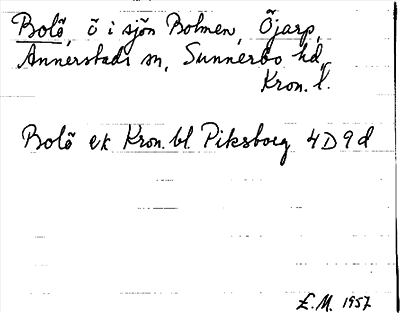 Bolö, ö i sjön Bolmen, Öjarp,
Annerstads sn, Sunnerbo hd,
Kron. l.
Bolö ek Kron. bl. Piksborg 4D9d
E.M. 1957